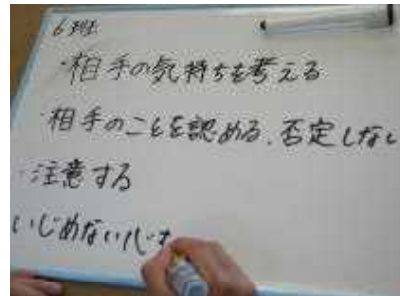 6班
・相手の気持ちを考える
・相手のことを認める、否定しない
・注意する
いじめない